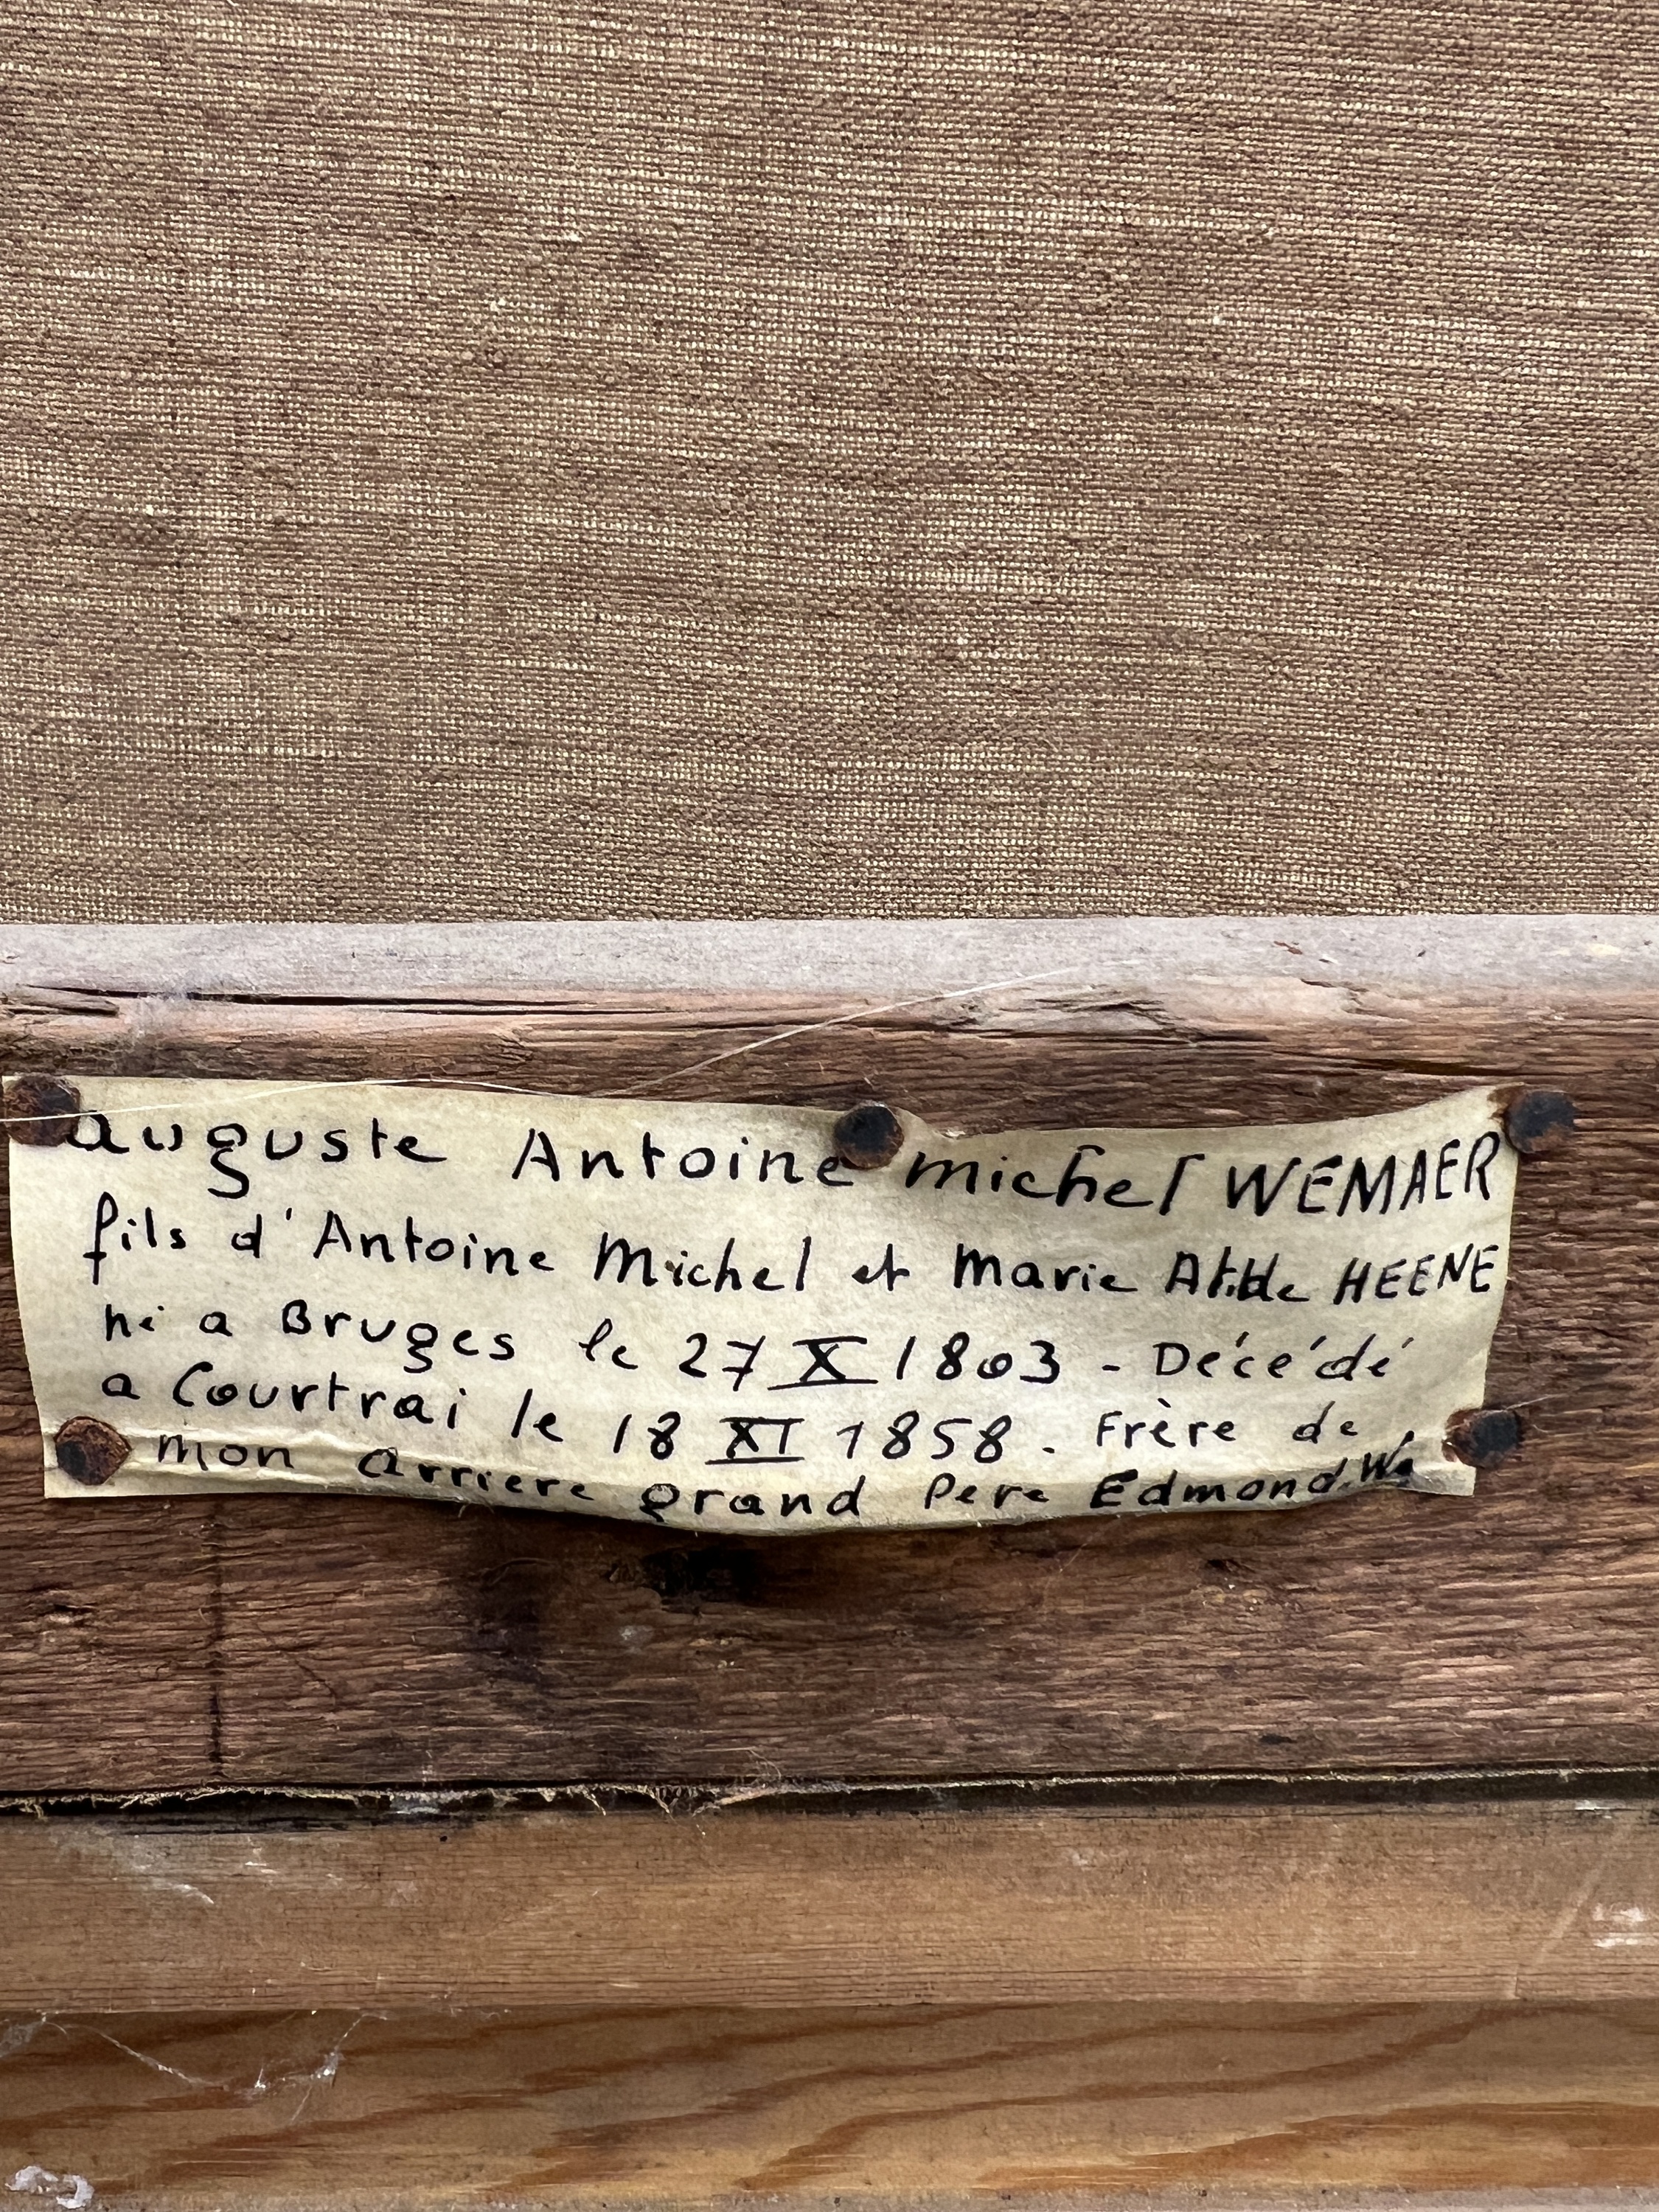 Auguste Antoine Michel WEMAER
fils d'Antoine Michel et Marie HEENE
né a Bruges le 27 X 1803 - Décédé
a Courtrai le 18 XI 1858. Frère de
mon Arriere grand Pere Edmond.We